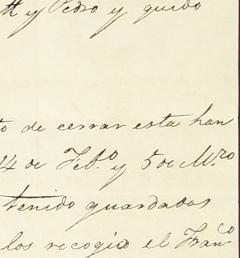 y Pedro y quido
to de cerrar esta han
14 de Feb.º y 5 de M.ro
tenido guardados
los recogio el Fran.co